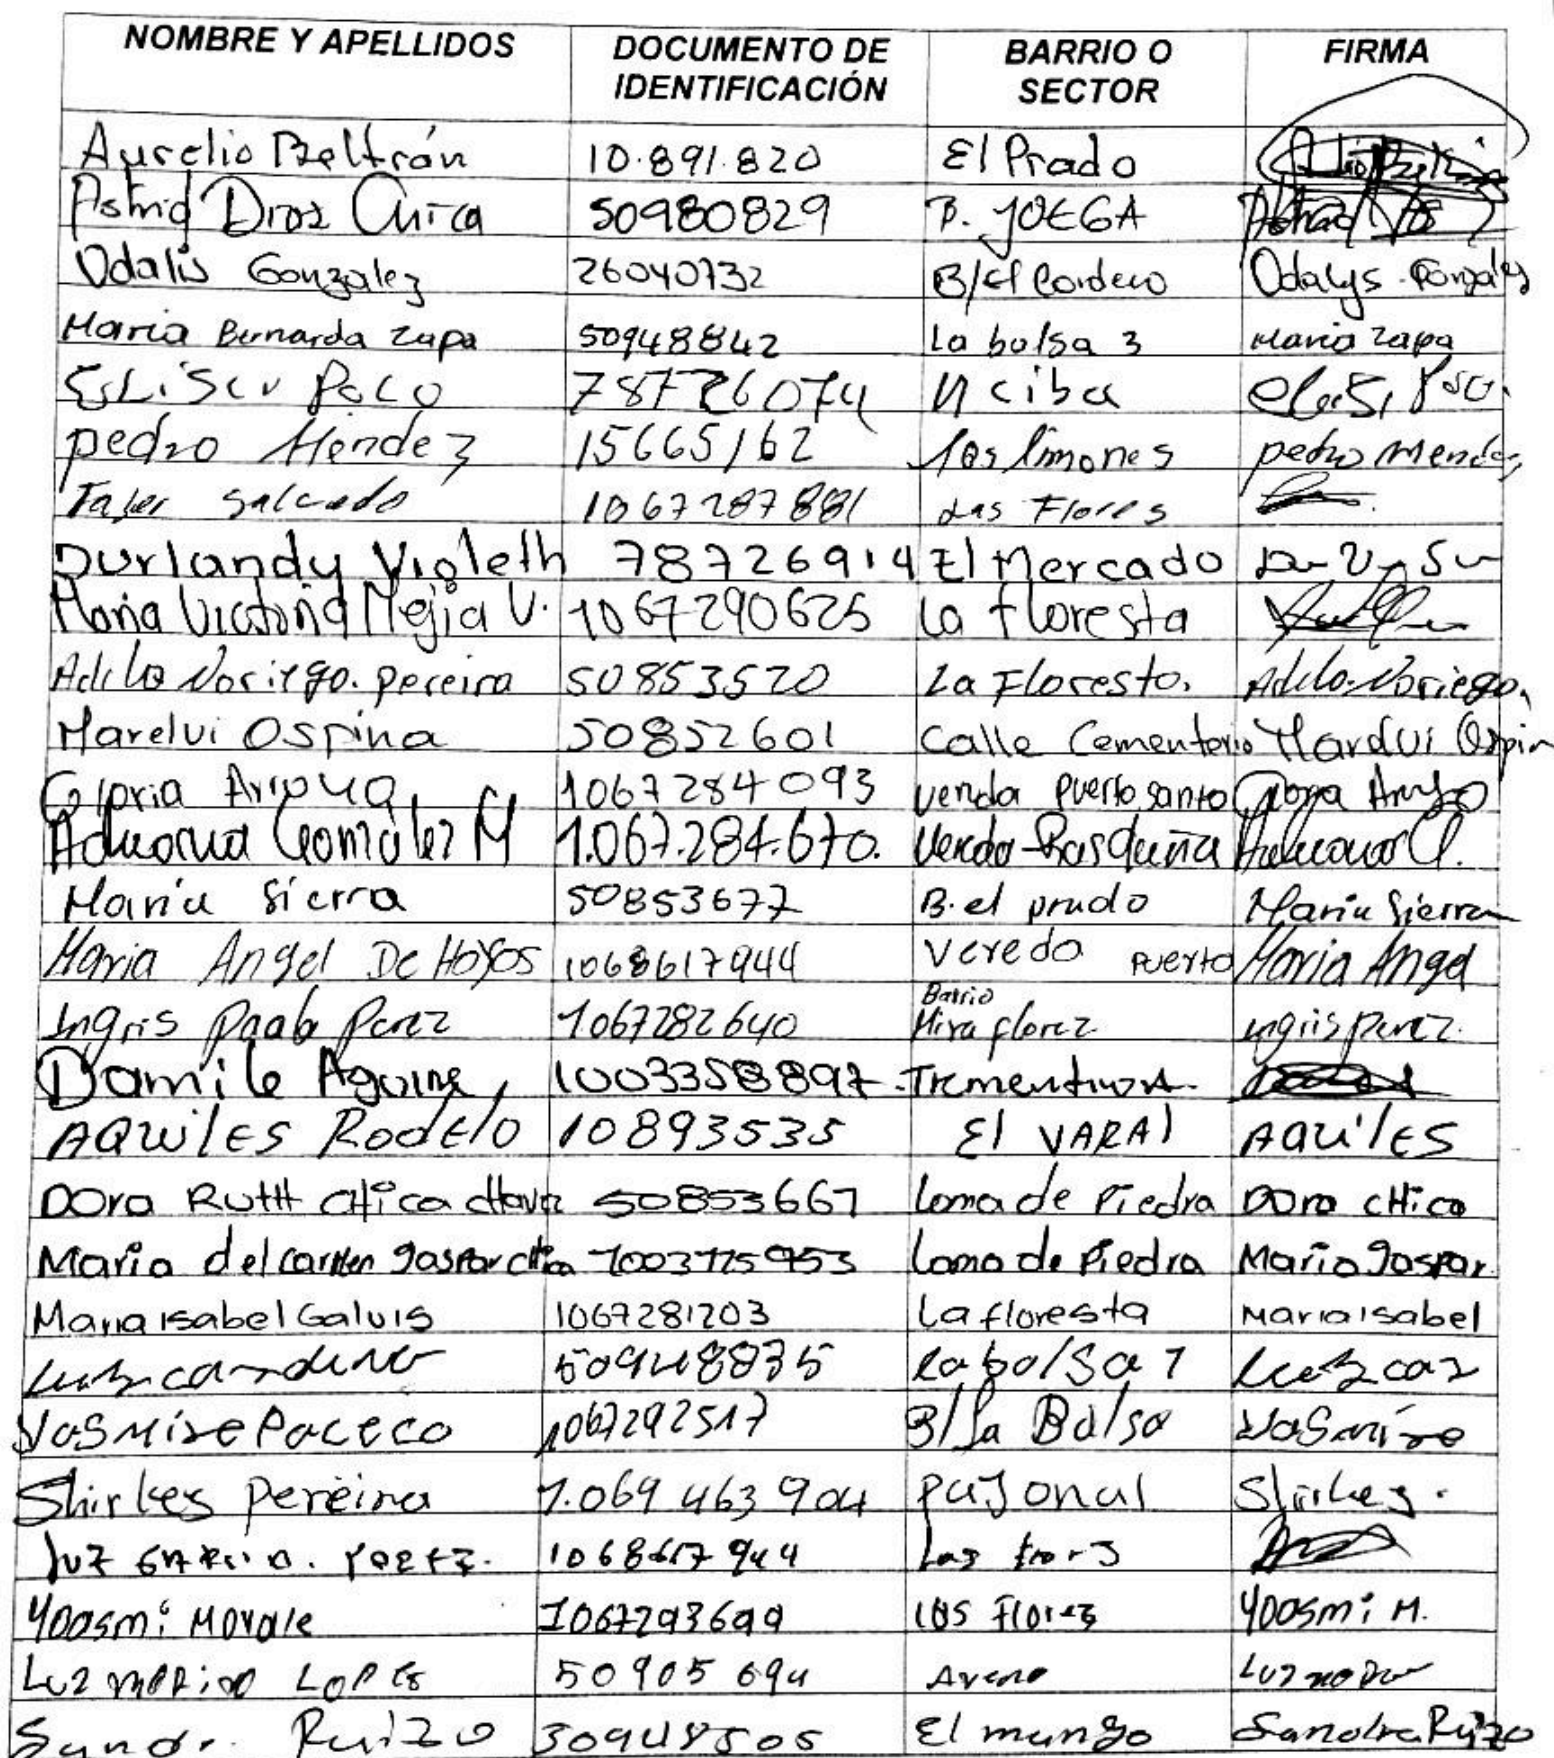 NOMBRE Y APELLIDOS DOCUMENTO DE IDENTIFICACIÓN BARRIO O SECTOR FIRMA
Aurelio Beltrán 10.891.820 El Prado
Astrid Diaz Chica 50980829 B. 
Odalis Gonzalez 26040732 B/El Cordero Odalys Gonzalez
Maria Bernarda Zapa 50948842 La bolsa 3 Maria Zapa
78726074
pedro Mendez 15665162 los limones pedro Mendez
Salcedo 1067287881 Las Flores
Durlandy Violeth 78726914 El Mercado
Maria Victoria Mejia V. 1067290625 la floresta
Noriego. pereira 50853520 La Floresto. Noriego.
Marelvi Ospina 50852601 Calle Cementerio Marelvi Ospin
Gloria Arroya 1067284093 vereda puerto santo
Gomález M 1.067.284.670. Vereda
Maria Sierra 50853677 B. el prado Maria Sierra
Maria Angel De Hoyos 1068617944 Veredo Puerto Maria Angel
Ingris Paola Perez 1067282640 Barrio Mira florez ingris perez.
Aguirre 1003358897
AQuilES RodElo 10893535 El VARAl AQuilES
Dora RuttH cHica 50853667 Loma de Piedra Dora cHica
Maria del carmen gaspar 1003725953 Loma de Piedra Maria gaspar.
Maria isabel Galvis 1067281203 La floresta Maria isabel
50948835 la bolsa 1
Vasmire Paceco 1067292517 B/la Bolsa Vasmire
Shirles Pereira 1.069 463 904 Pajonal
luz 1068617944 Las
Yoasmi Morale 1067293699 las Florez Yoasmi M.
Luz LOPEs 50905694
Ruizo 30948505 El mango Sandra Ruizo